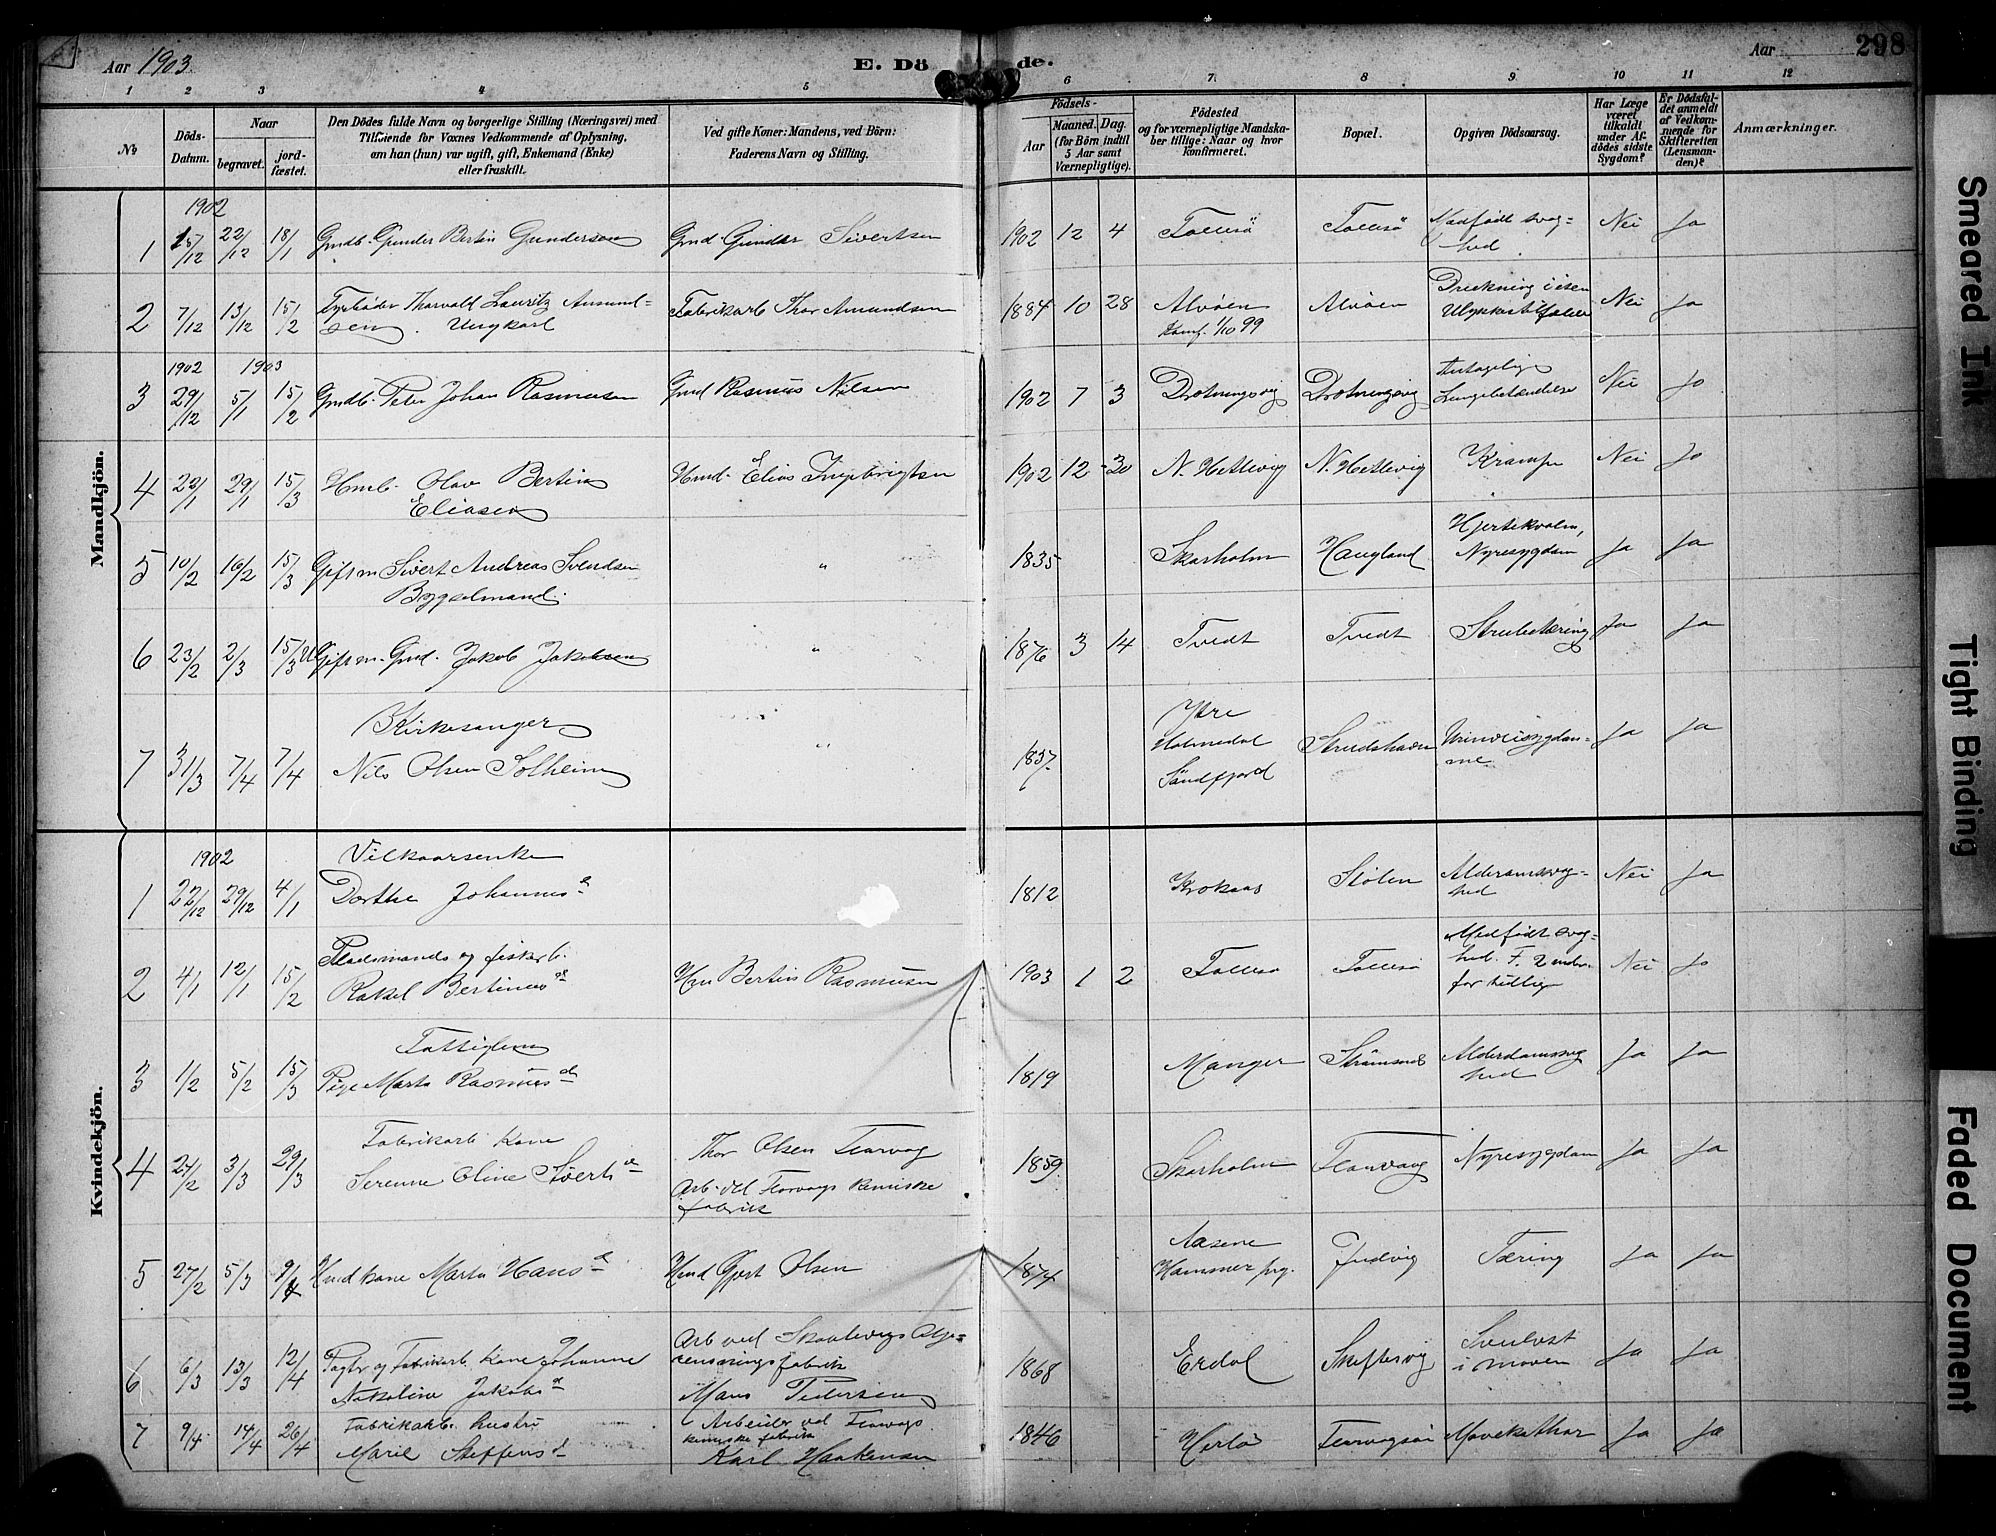 Aar 1903. E. Dö de. Aar 298
1 2 3 4 5 6 7. 8 9 10 11 12
No
Döds-Datum.
Naar
begravet.
jord-fæstet.
Den Dödes fulde Navn og borgerlige Stilling (Næringsvei) med
Tilföiende for Voxnes Vedkommende af Oplysning,
om han (hun) var ugift, gift, Enkemand (Enke)
eller fraskilt.
Ved gifte Koner: Mandens, ved Börn:
Faderens Navn og Stilling.
Födsels-
Aar
Maaned. Dag.
(for Börn indtil
5 Aar samt
Værnepligtige).
Födested
og for værnepligtige Mandska-
ber tillige: Naar og hvor
konfirmeret.
Bopæl.
Opgiven Dödsaarsag.
Har Læge
været
tilkaldt
under Af-
dödes sidste
Sygdom?
Er Dödsfal-
det anmeldt
af Vedkom-
mende for
Skifteretten
(Lensman-
den)?
Anmærkninger.
Mandkjön.
1902
1 15/12 22/12 18/1 Gmdb. Gunder Bertin Gundersen Gmd Gunder Sivertsen 1902 12 4 Follesö Follesö Medfödt svag=
hed Nei Ja
2 7/12 13/12 15/2 Fyrböder Thorvald Lauritz Amund=
sen. Ungkarl Fabrikarb Thor Amundsen 1884 10 28 Alvöen
Konf. 1/10 99 Alvöen Drukning i
Ulykkestilfælde Nei Ja
1902 1903
3 29/12 5/1 15/2 Gmdb. Peter Johan Rasmussen Gmd Rasmus Nilsen 1902 7 3 Drotningsvig Drotningsvig Antagelig
Lungebetændelse Nei Ja
4 22/1 29/1 15/3 Hmb. Olav Bertin
Eliasen Hmd. Elias Ingebrigtsen 1902 12 30 N. Hetlevig N. Hetlevig Krampe Nei Ja
5 10/2 16/2 15/3 Gift m Sivert Andreas Svendsen
Bygselmand. " 1835 Skarholm Haugland Hjerteknolm,
Nyresygdom Ja Ja
6 23/2 2/3 15/3 Gift m. Gmd. Jakob Jakobsen " 1876 3 14 Tvedt Tvedt Strubetæring Ja Ja
7 31/3 7/4 7/4 Kirkesanger
Nils Olsen Solheim " 1837 Ytre
Holmedal
Söndfjord Strudshavn Urinveissygdom-
me Ja Ja
Kvindekjön.
1902
1 22/12 29/12 4/1 Vilkaarsenke
Dorthe Johannesd 1812 Krokaas Stölen Alderdomsvag=
hed Nei Ja
2 4/1 12/1 15/2 Pladsmands og fiskerb.
Rakel Bertinusd Hm Bertin Rasmussen 1903 1 2 Follesö Follesö Medfödt svag=
hed. F. 2 mdr
for tidlig Nei Ja
3 1/2 5/2 15/3 Fattiglem
Pige Marta Rasmusd 1819 Manger Strömsnes Alderdomssvag
hed Ja Ja
4 24/2 3/3 29/3 Fabrikarb Kone
Serenne Oline Sivertsd Thor Olsen Florvag
Arb. ved Florvags kemiske
fabrik 1859 Skarholm Florvaag Nyresygdom Ja Ja
5 27/2 5/3 Hmd kone Marta Hansd Hmd Gjert Olsen 1874 Aasene
Hammer prg. Indvig Tæring Ja Ja
6 6/3 13/3 12/4 og Fabrikarb. Kone Johanne
Nikoline Jakobsd Arb ved Skaalevigs Olje-
rensningsfabrik
Mons Pedersen 1868 Erdal Skiftesvig Svulst
i maven Ja Ja
7 9/4 14/4 26/4 Fabrikarb. hustru
Marie Steffensd Arbeider ved Florvags
kemiske fabrik
Karl Haakonsen 1846 Herlö Florvagöen Mavekathar Ja Ja
Smeared Ink
Tight Binding
Faded Document